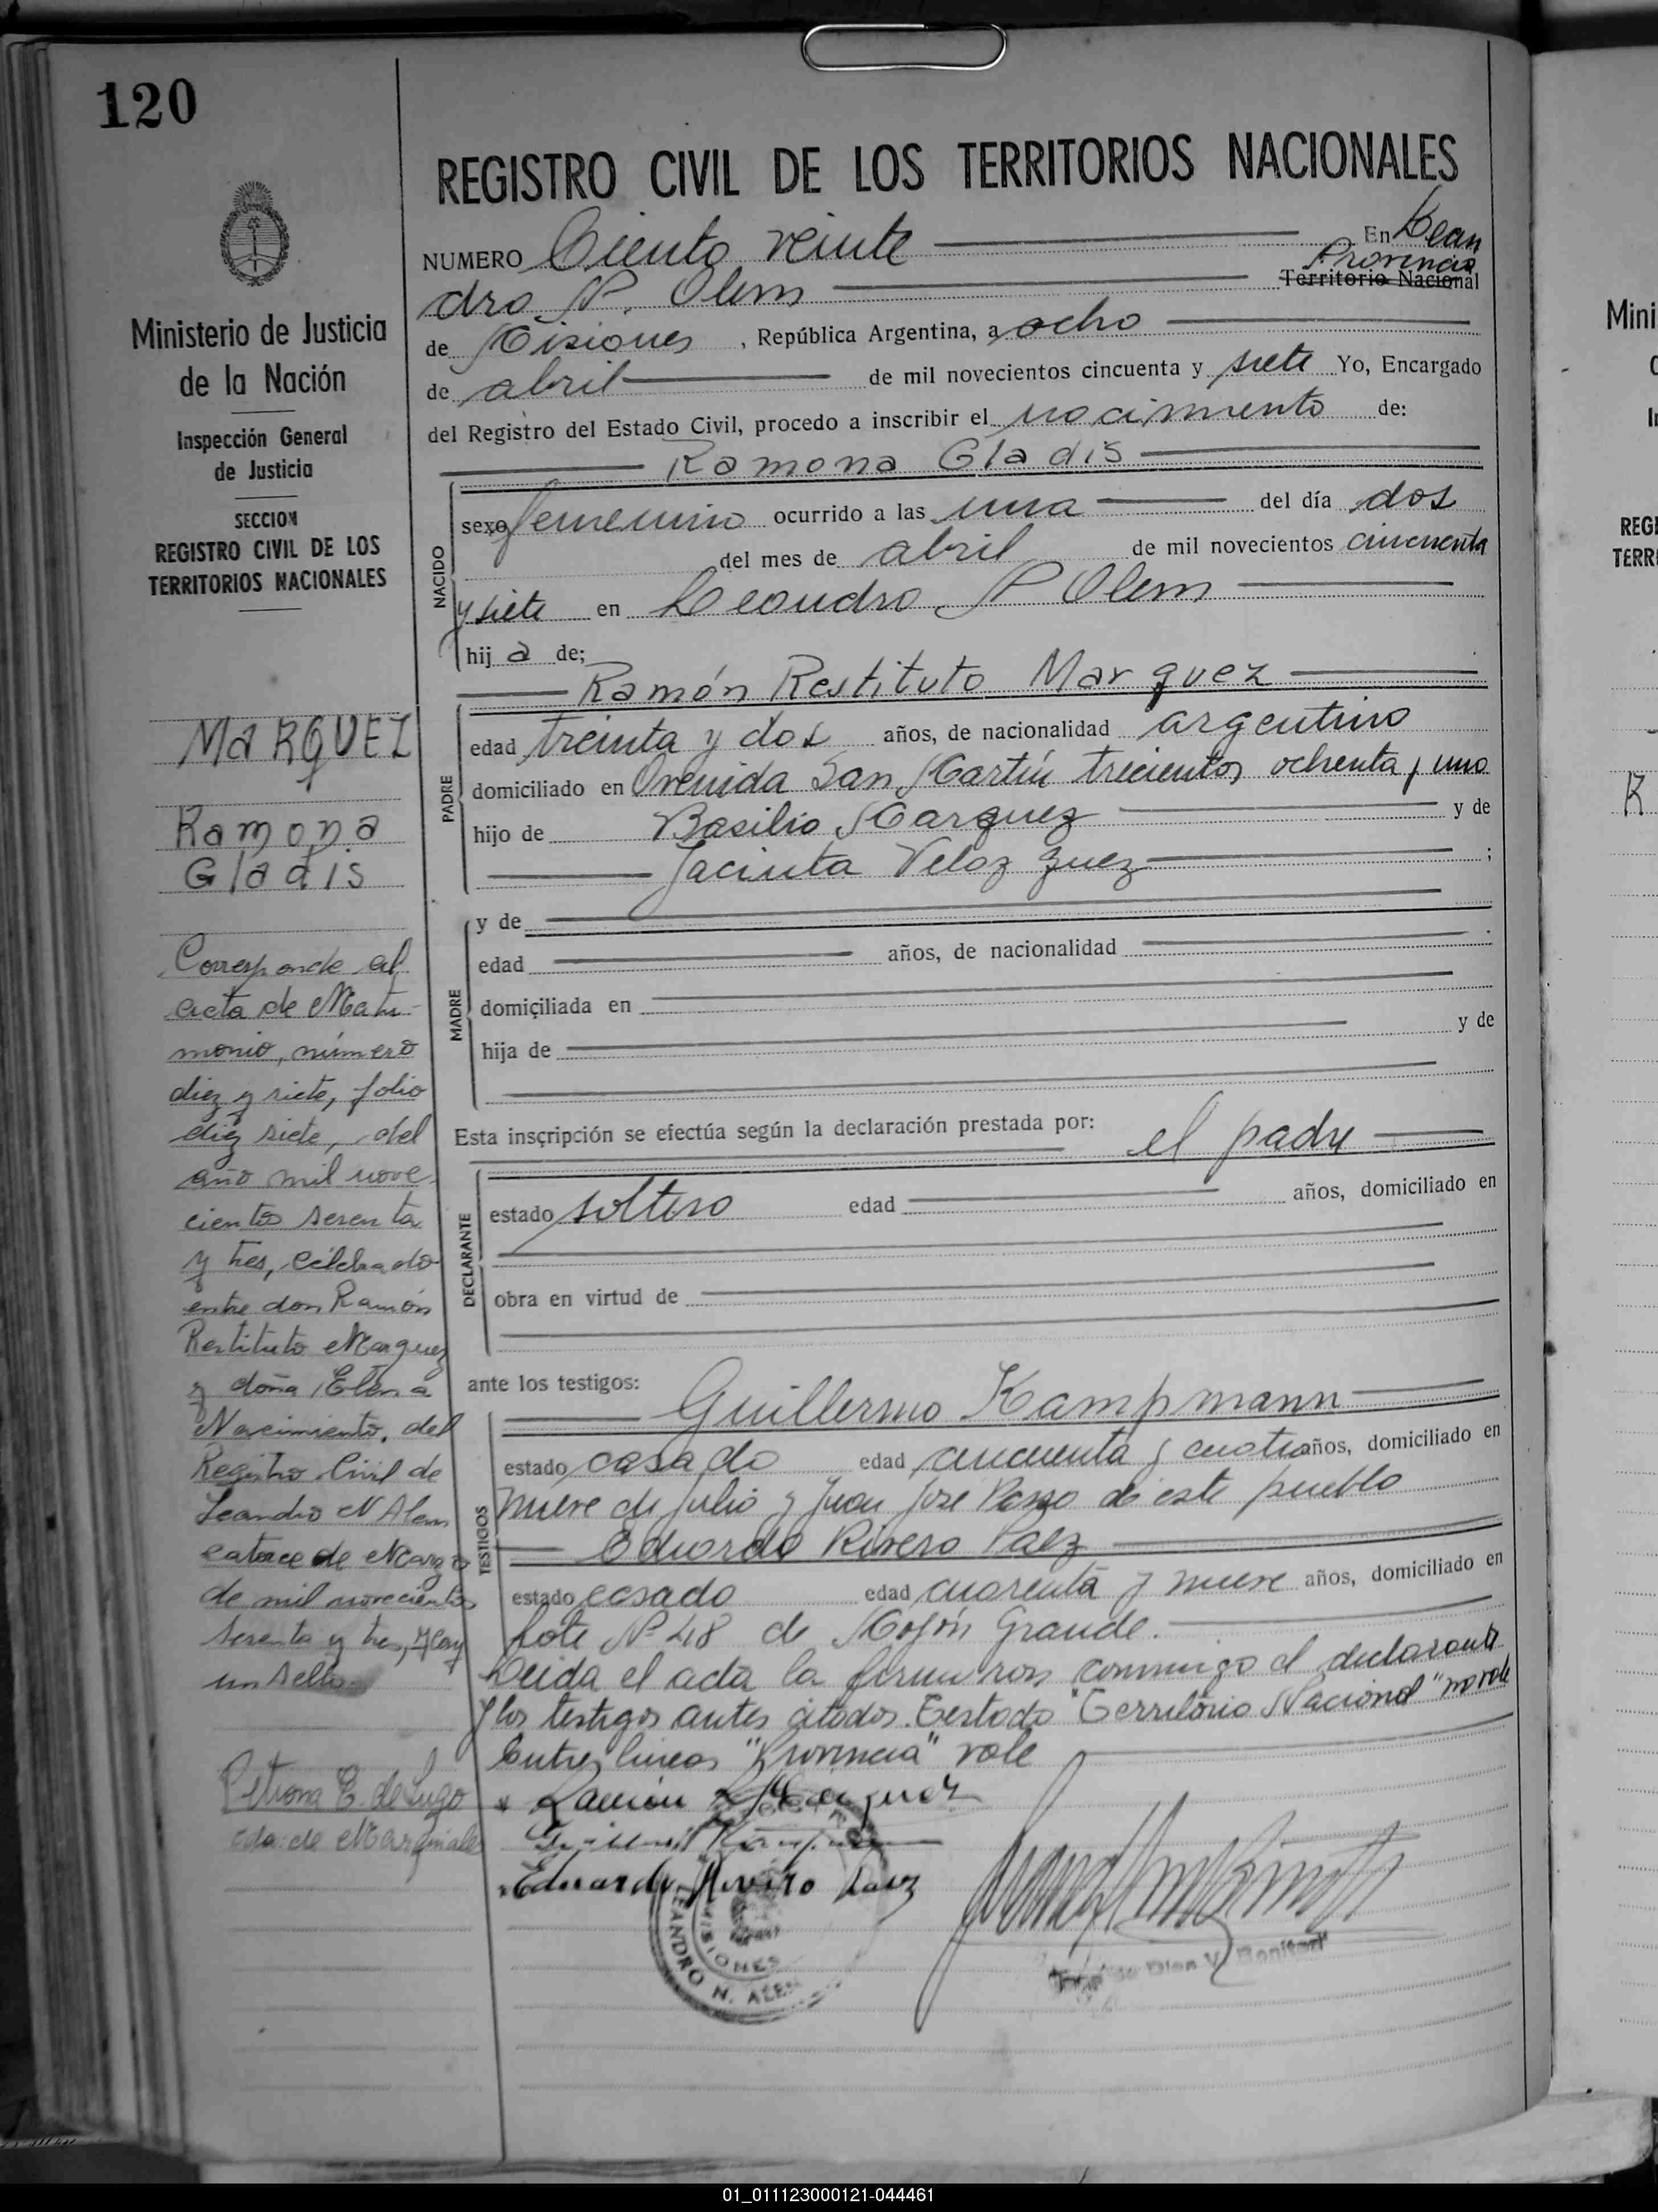 120
REGISTRO CIVIL DE LOS TERRITORIOS NACIONALES
NUMERO Ciento veinte En Lean
dro N. Alem Provincia
Territorio Nacional
de Misiones, República Argentina, a ocho
de abril de mil novecientos cincuenta y siete Yo, Encargado
del Registro del Estado Civil, procedo a inscribir el nacimiento de:
Ramona Gladis
NACIDO
sexo femenino ocurrido a las una del día dos
del mes de abril de mil novecientos cincuenta
y siete en Leandro N Alem
hij a de;
Ramón Restituto Marquez
PADRE
edad treinta y dos años, de nacionalidad argentino
domiciliado en Avenida San Martín trecientos ochenta y uno
hijo de Basilio Marquez y de
Jacinta Velazquez ;
MADRE
y de
edad años, de nacionalidad
domiciliada en
hija de y de
Esta inscripción se efectúa según la declaración prestada por: el padre
DECLARANTE
estado soltero edad años, domiciliado en
obra en virtud de
ante los testigos:
Guillermo Kampmann
TESTIGOS
estado casado edad cincuenta y cuatro años, domiciliado en
nueve de Julio y Juan José Passo de este pueblo
Eduardo Rivero Paez
estado casado edad cuarenta y nueve años, domiciliado en
Lote Nº 48 de Mojón Grande.
Leida el acta la firmaron conmigo el declarante
y los testigos antes citados. Testado "Territorio Nacional" no vale
Entre lineas "Provincia" vale
Ramón R Marquez
Eduardo Rivero Paez
LEANDRO N. ALEM
MISIONES
Ministerio de Justicia
de la Nación
Inspección General
de Justicia
SECCION
REGISTRO CIVIL DE LOS
TERRITORIOS NACIONALES
MARQUEZ
Ramona
Gladis
Corresponde al
acta de Matri-
monio, número
diez y siete, folio
diez siete, del
año mil nove
cientos setenta
y tres, celebrado
entre don Ramón
Restituto Marquez
y doña Elena
Nacimiento, del
Registro Civil de
Leandro N Alem
catorce de Marzo
de mil novecientos
setenta y tres, Hay
un sello
Petrona E. de Lugo
cda: de Marginales
Mini
REGI
TERRI
R
01_011123000121-044461